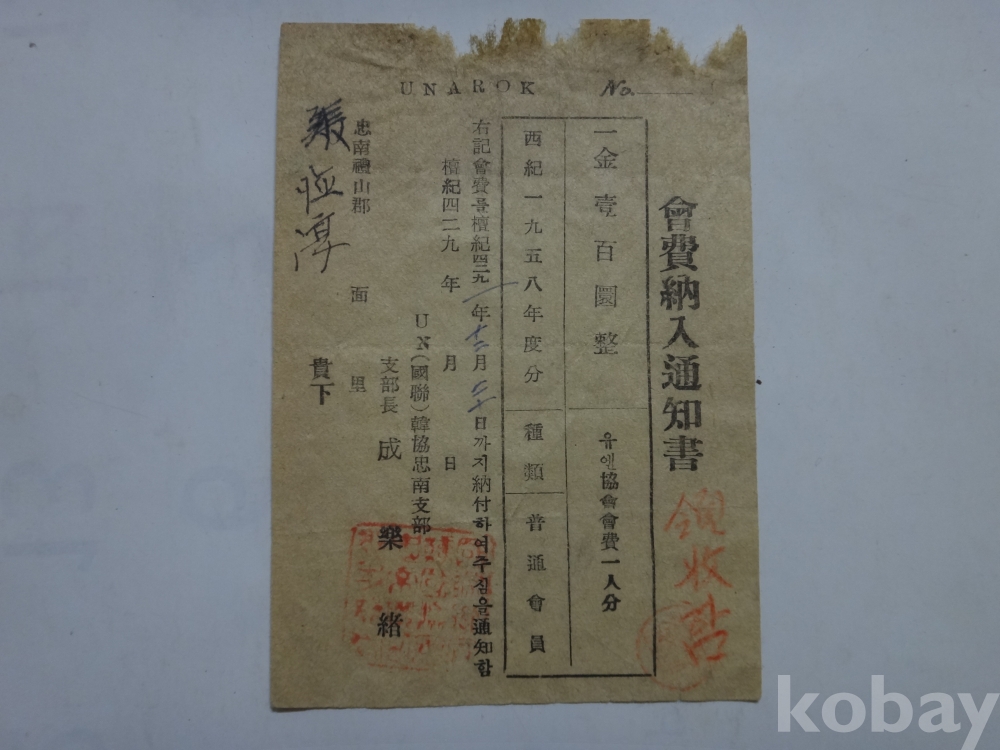 UNAROK
No.
會費納入通知書
一金壹百圜整
유엔協會會費一人分
西紀一九五八年度分
種類
普通會員
右記會費를檀紀四二九一年十二月二十日까지納付하여주심을通知함
檀紀四二九 年 月 日
UN(國聯)韓協忠南支部
支部長 成樂緖
忠南禮山郡 面 里
張 淳 貴下
領收
kobay